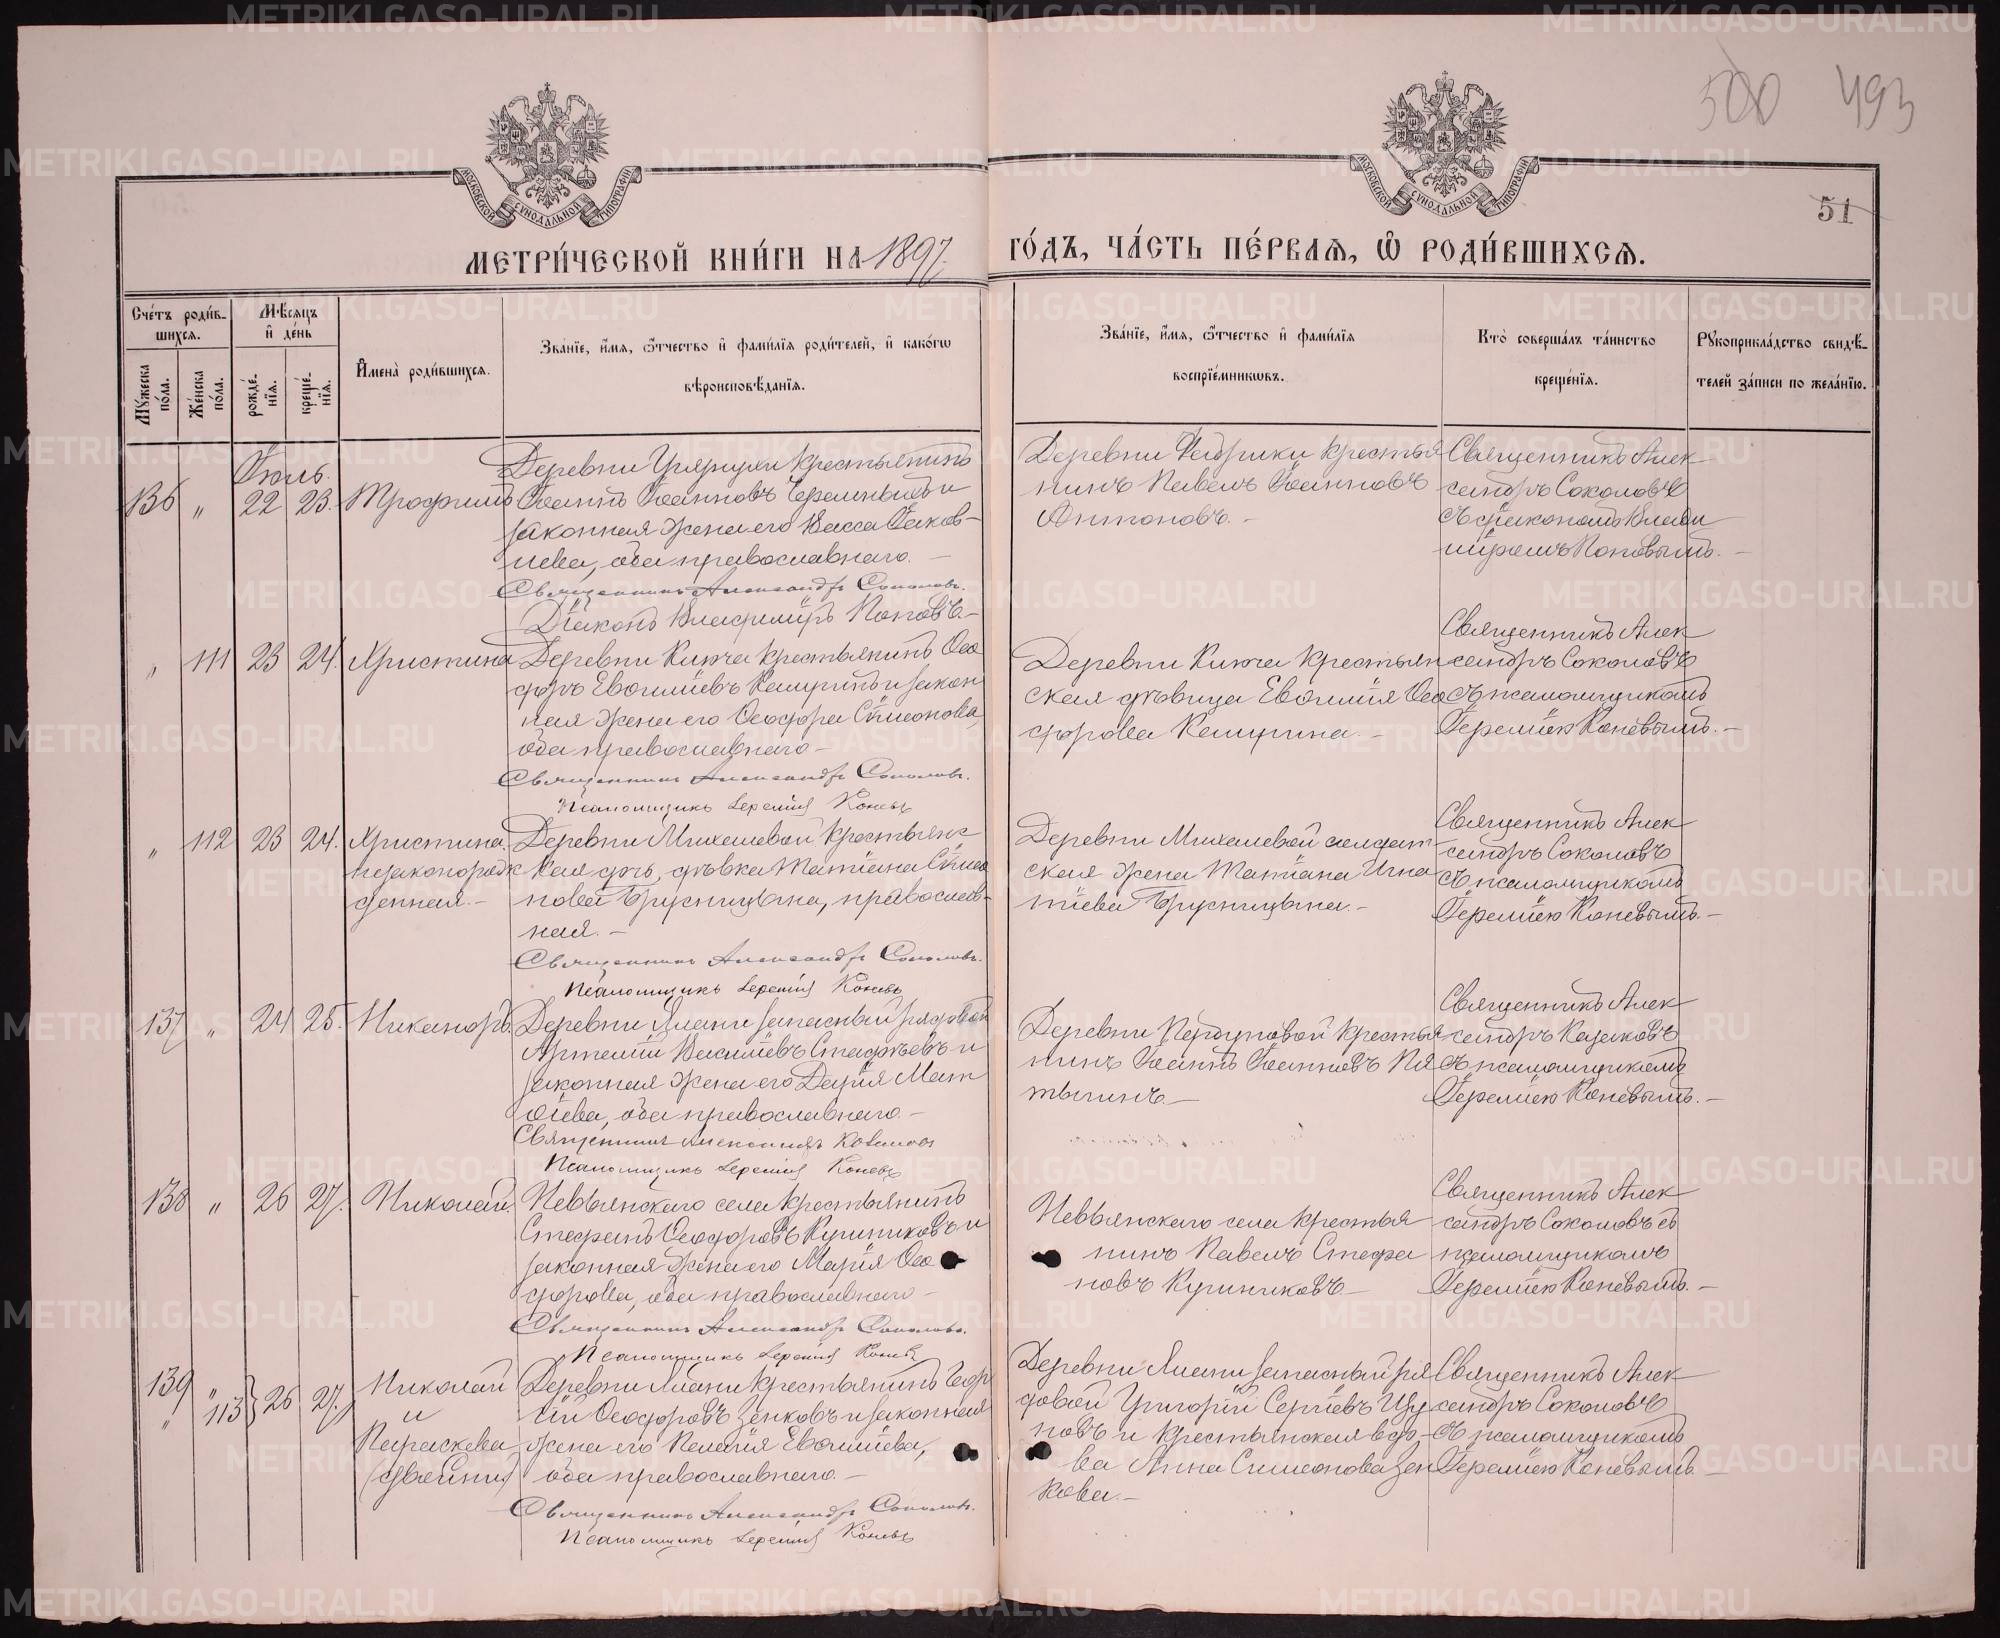 500 493
51
МОСКОВСКОЙ СѴНОДАЛЬНОЙ ТИПОГРАФІИ
МОСКОВСКОЙ СѴНОДАЛЬНОЙ ТИПОГРАФІИ
МЕТРИ́ЧЕСКОЙ КНИ́ГИ НА 1897. ГО́ДЪ, ЧА́СТЬ ПЕ́РВАѦ, Ѡ҆ РОДИ́ВШИХСѦ.
Сче́тъ роди́в-
шихсѧ.
Мѣ́сѧцъ
и҆ де́нь
Мꙋ́жеска по́ла.
Же́нска по́ла.
рожде́-нїѧ.
креще́-нїѧ.
И҆мена̀ роди́вшихсѧ.
Зва́нїе, и҆́мѧ, ѻ҆́тчество и҆ фами́лїѧ роди́телей, и҆ како́гѡ
вѣроисповѣ́данїѧ.
Зва́нїе, и҆́мѧ, ѻ҆́тчество и҆ фами́лїѧ
воспрїе́мникѡвъ.
Кто̀ соверша́лъ та́инство
креще́нїѧ.
Рꙋкоприкла́дство свидѣ́-
телей за́писи по жела́нїю.
Іюль.
136 „ 22 23. Трофимъ
Іоаннъ Іоанновъ Черемныхъ и
законная жена его Васса Іаков-
лева, оба православнаго. –
Священникъ Александръ Соколовъ.
Діаконъ Владиміръ Поповъ. –
Деревни Фабрики крестья
нинъ Павелъ Іоанновъ
Антоновъ. –
Священникъ Алек
сандръ Соколовъ
съ діакономъ Влади
міромъ Поповымъ. –
„ 111 23 24. Христина
Деревни Ключа крестьянинъ Ѳео
доръ Евѳиміевъ Кащинъ и закон
ная жена его Ѳеодора Сѵмеонова,
оба православнаго –
Священникъ Александръ Соколовъ.
Псаломщикъ Іеремія Коневъ
Деревни Ключа крестьян
ская дѣвица Евѳимія Ѳео
дорова Кащина. –
Священникъ Алек
сандръ Соколовъ
съ псаломщикомъ
Іереміею Коневымъ. –
„ 112 23 24. Христина,
незаконорож
денная. –
Деревни Михалевой крестьянс
кая дочь, дѣвка Татіана Сѵмео
нова Брусницына, православ-
ная. –
Священникъ Александръ Соколовъ.
Псаломщикъ Іеремія Коневъ
Деревни Михалевой солдат
ская жена Татіана Игна
тіева Брусницына. –
Священникъ Алек
сандръ Соколовъ
съ псаломщикомъ
Іереміею Коневымъ. –
137 „ 24 25. Никаноръ.
Деревни Ялани запасный рядовой
Артемій Василіевъ Стафѣевъ и
законная жена его Дарія Мат
ѳіева, оба православнаго. –
Священникъ Александръ Казаковъ
Псаломщикъ Іеремія Коневъ
Деревни Пердуновой крестья
нинъ Іоаннъ Іоанновъ Пя
тыгинъ. –
Священникъ Алек
сандръ Казаковъ
съ псаломщикомъ
Іереміею Коневымъ. –
138 „ 26 27. Николай.
Невьянскаго села крестьянинъ
Стефанъ Ѳеодоровъ Кушниковъ и
законная жена его Марія Ѳео
дорова, оба православнаго –
Священникъ Александръ Соколовъ.
Псаломщикъ Іеремія Коневъ
Невьянскаго села крестья
нинъ Павелъ Стефа
новъ Кушниковъ –
Священникъ Алек
сандръ Соколовъ съ
псаломщикомъ
Іереміею Коневымъ. –
139 „ 113 26 27. Николай
и
Параскева
(двойни)
Деревни Ялани крестьянинъ Геор
гій Ѳеодоровъ Зенковъ и законная
жена его Пелагія Евѳиміева,
оба православнаго. –
Священникъ Александръ Соколовъ.
Псаломщикъ Іеремія Коневъ
Деревни Ялани запасный ря
довой Григорій Сергіевъ
новъ и крестьянская вдо-
ва Анна Симеонова Зен
кова. –
Священникъ Алек
сандръ Соколовъ
съ псаломщикомъ
Іереміею Коневымъ. –
METRIKI.GASO-URAL.RU